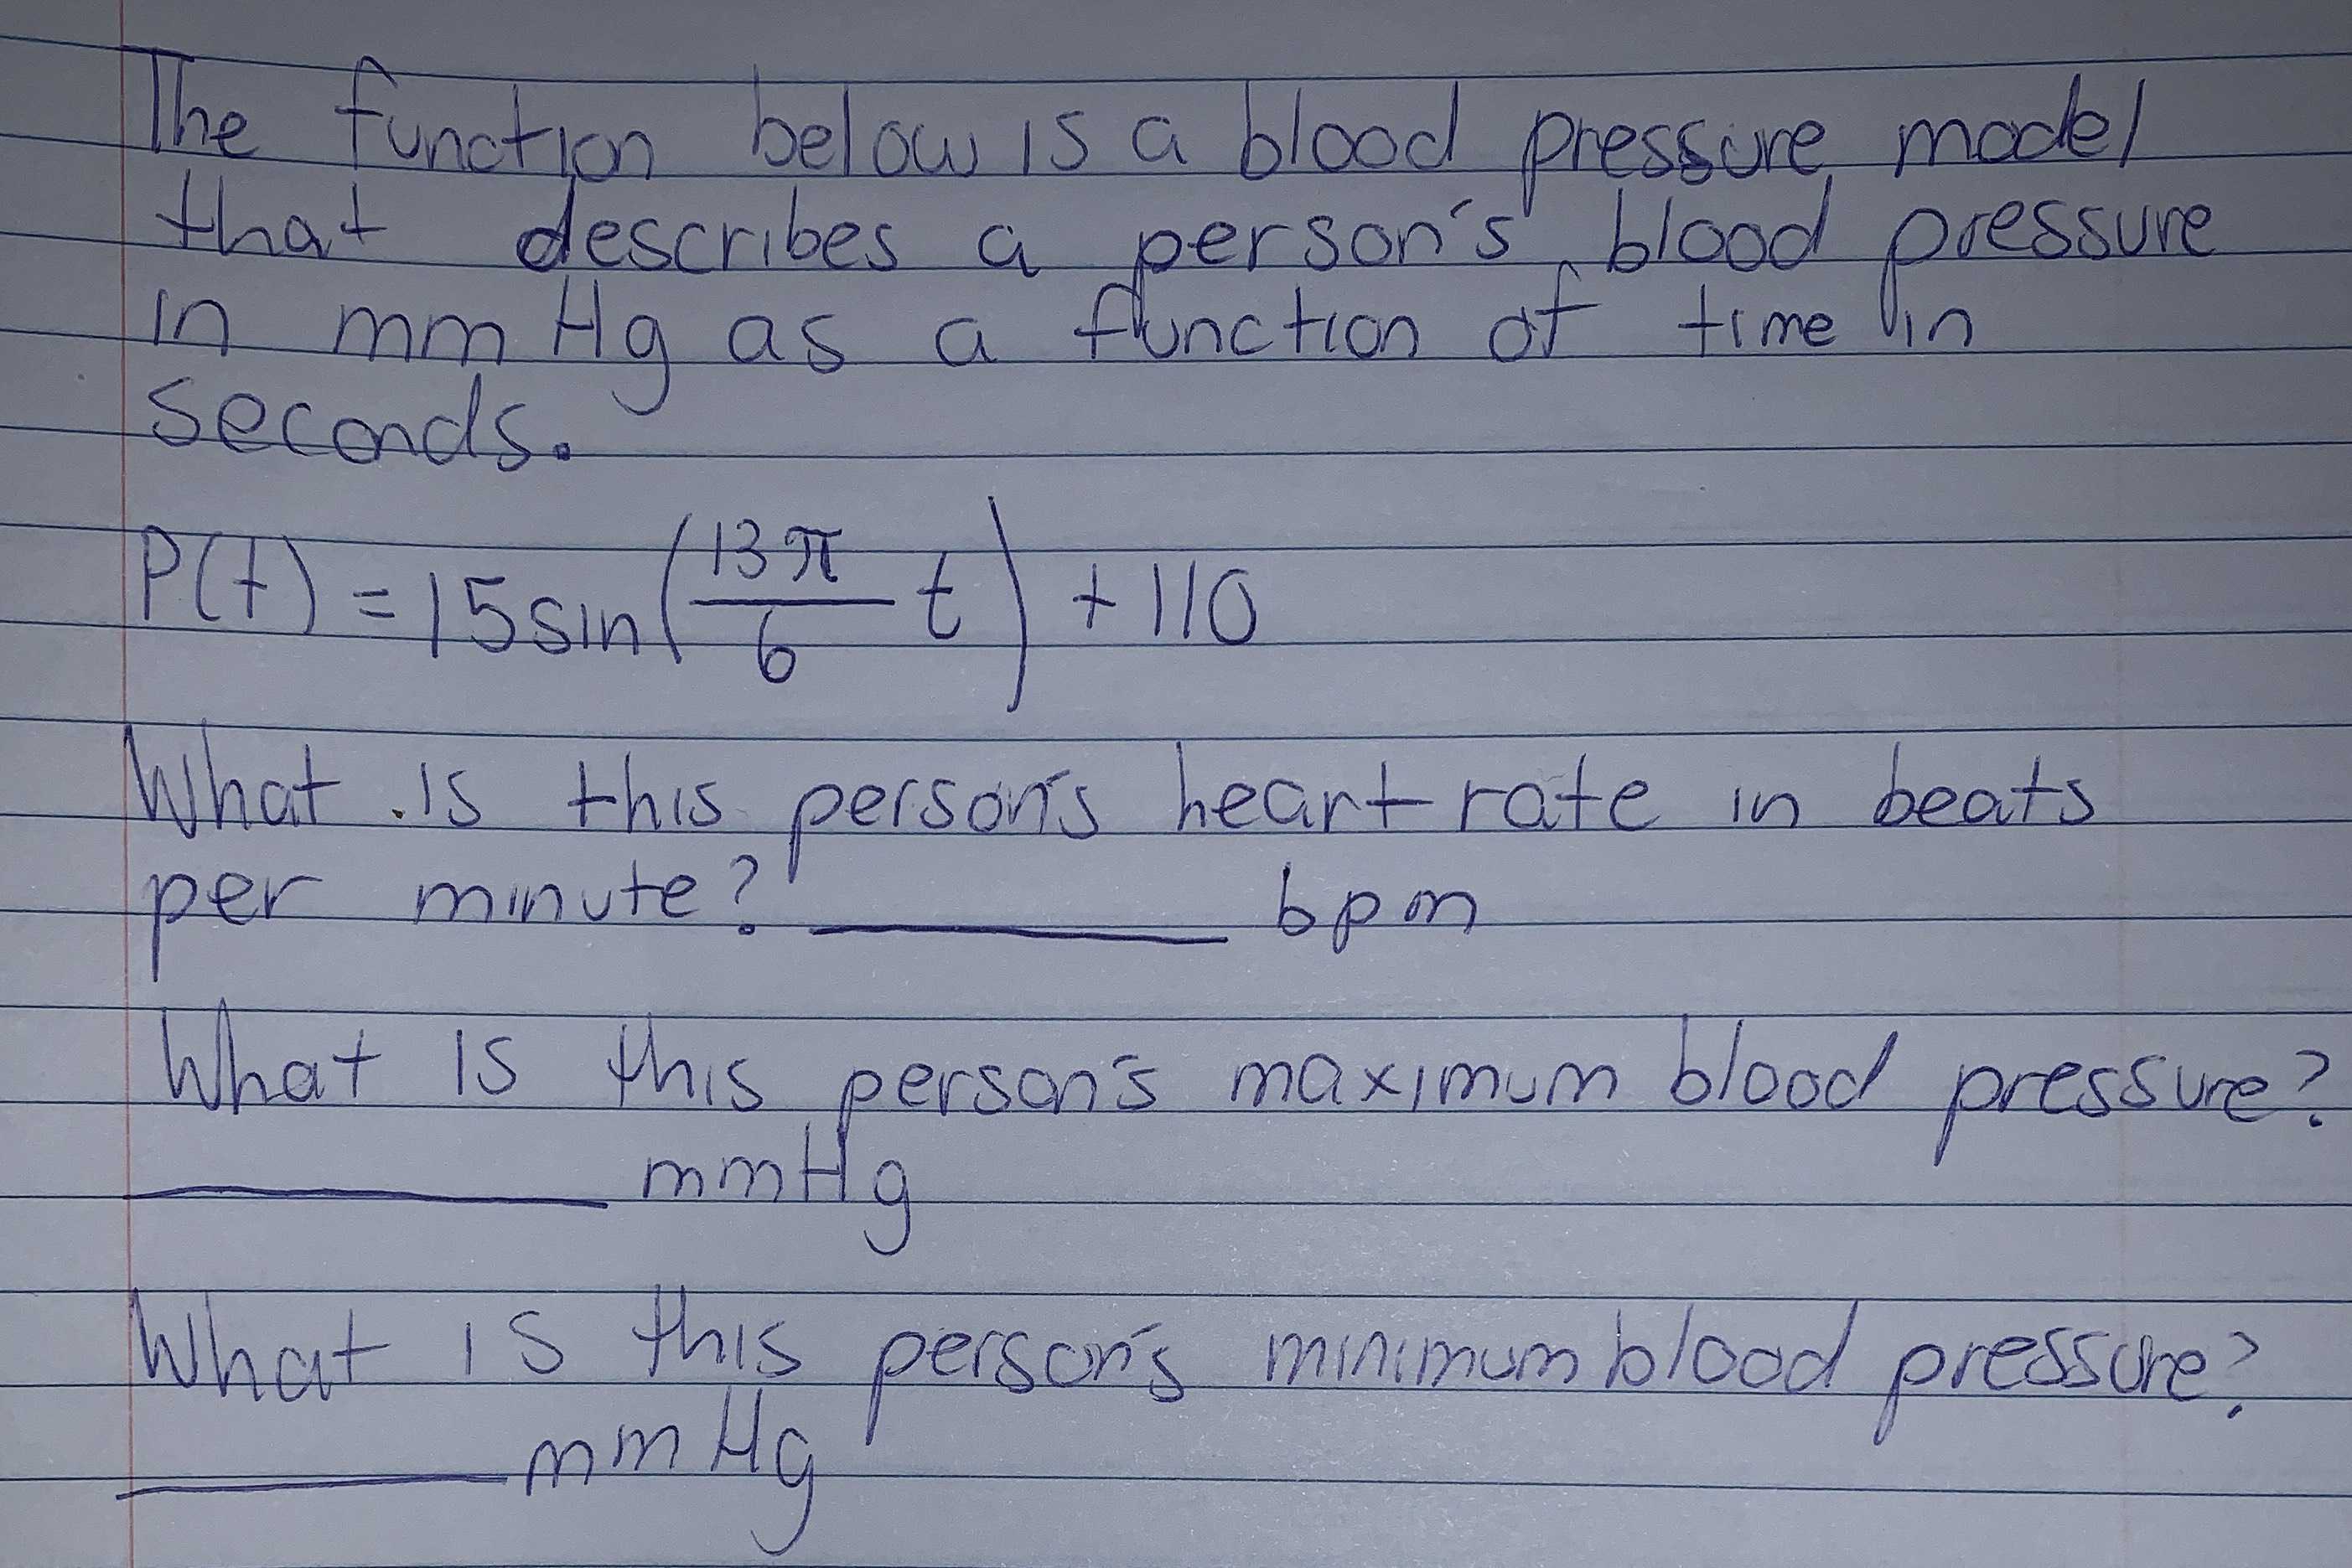 The function below is a blood pressure model
that describes a person's blood pressure
in mm Hg as a function of time in
seconds.
P(t) = 15 sin(13π/6 t) + 110
What is this person's heart rate in beats
per minute? ______ bpm
What is this person's maximum blood pressure?
______ mmHg
What is this person's minimum blood pressure?
______ mm Hg